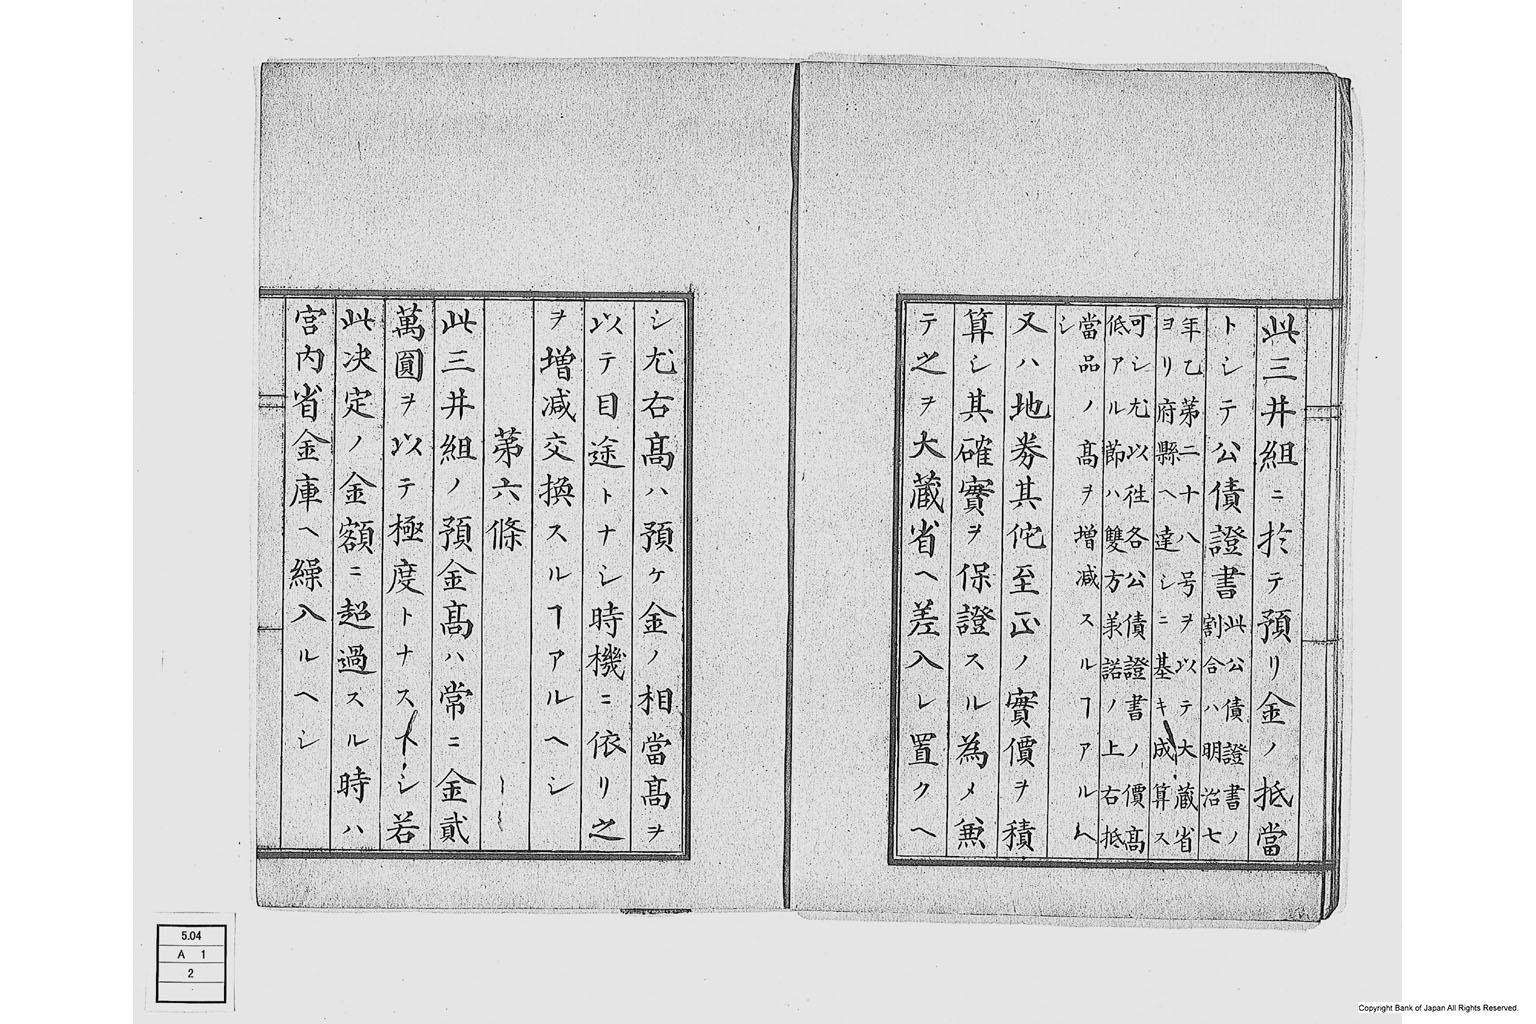 此三井組ニ於テ預リ金ノ抵當
トシテ公債證書此公債證書ノ
割合ハ明治七
年乙第二十八号ヲ以テ大蔵省
ヨリ府縣ヘ達シニ基キ成算ス
可シ尤以徃各公債證書ノ價髙
低アル節ハ雙方承諾ノ上右抵
當品ノ髙ヲ増减スルヿアルヘ
シ
又ハ地券其佗至正ノ實價ヲ積
算シ其確實ヲ保證スル為メ兼
テ之ヲ大蔵省ヘ差入レ置クヘ
シ尤右髙ハ預ケ金ノ相當髙ヲ
以テ目途トナシ時機ニ依リ之
ヲ増减交換スルヿアルヘシ
第六條
此三井組ノ預金髙ハ常ニ金貳
萬圓ヲ以テ極度トナスヘシ若
此决定ノ金額ニ超過スル時ハ
宮内省金庫ヘ繰入ルヘシ
5.04
A 1
2
Copyright Bank of Japan All Rights Reserved.